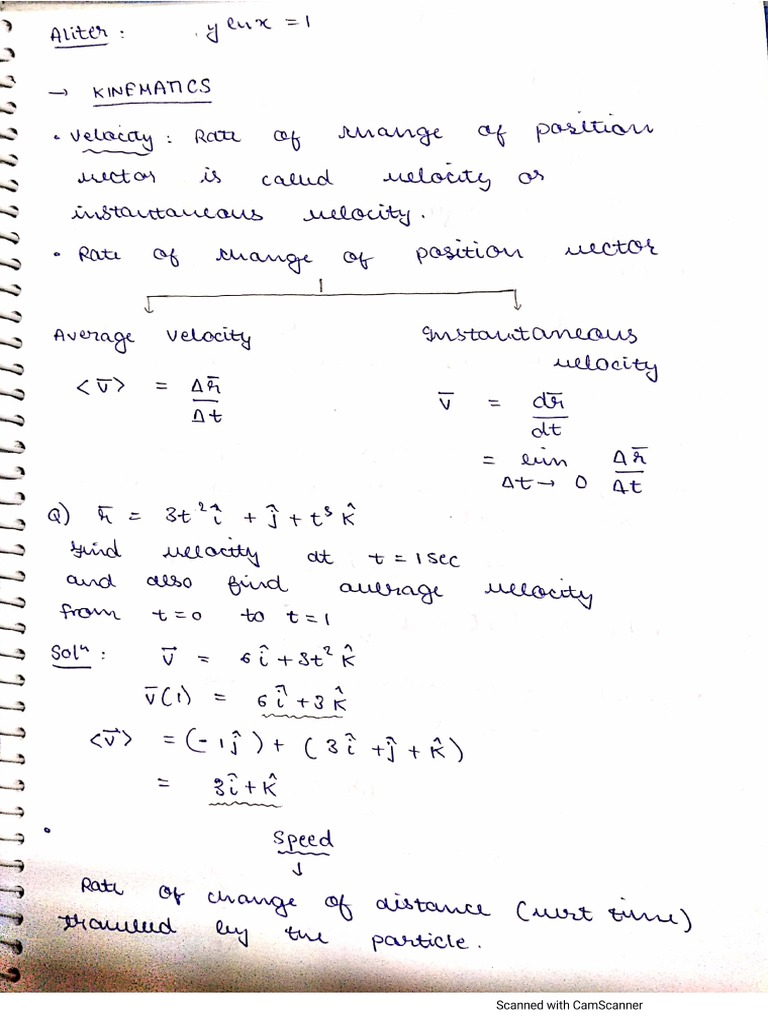 Aliter : y ln x = 1
→ KINEMATICS
• Velocity : Rate of change of position
vector is called velocity or
instantaneous velocity.
• Rate of change of position vector
Average velocity
<v̄> = Δr̄/Δt
Instantaneous
velocity
v̄ = dr̄/dt
= lim Δt→0 Δr̄/Δt
Q) r̄ = 3t²î + ĵ + t³k̂
find velocity at t = 1 sec
and also find average velocity
from t=0 to t=1
Solⁿ : v⃗ = 6î + 3t²k̂
v̄(1) = 6î + 3k̂
<v⃗> = (-1ĵ) + (3î + ĵ + k̂)
= 3î + k̂
•
Speed
↓
Rate of change of distance (wrt time)
travelled by the particle.
Scanned with CamScanner